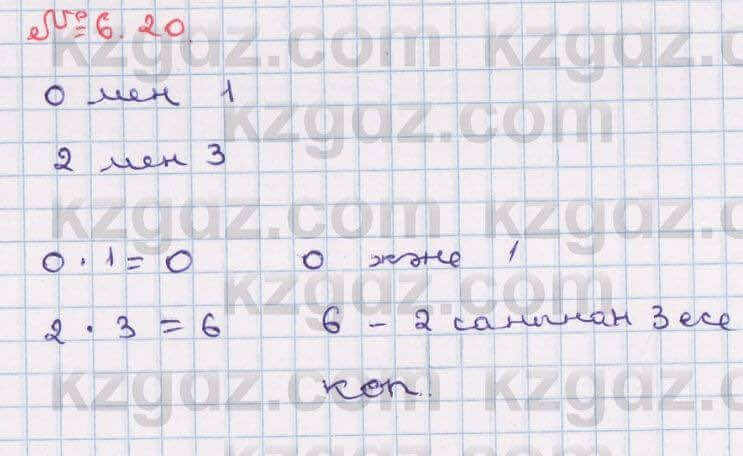 № 6.20.
0 мен 1
2 мен 3
0 · 1 = 0 0 және 1
2 · 3 = 6 6 – 2 санынан 3 есе
көп.
kzgdz.com kzgdz.com
kzgdz.com
kzgdz.com kzgdz.com
kzgdz.com
kzgdz.com kzgdz.com
kzgdz.com